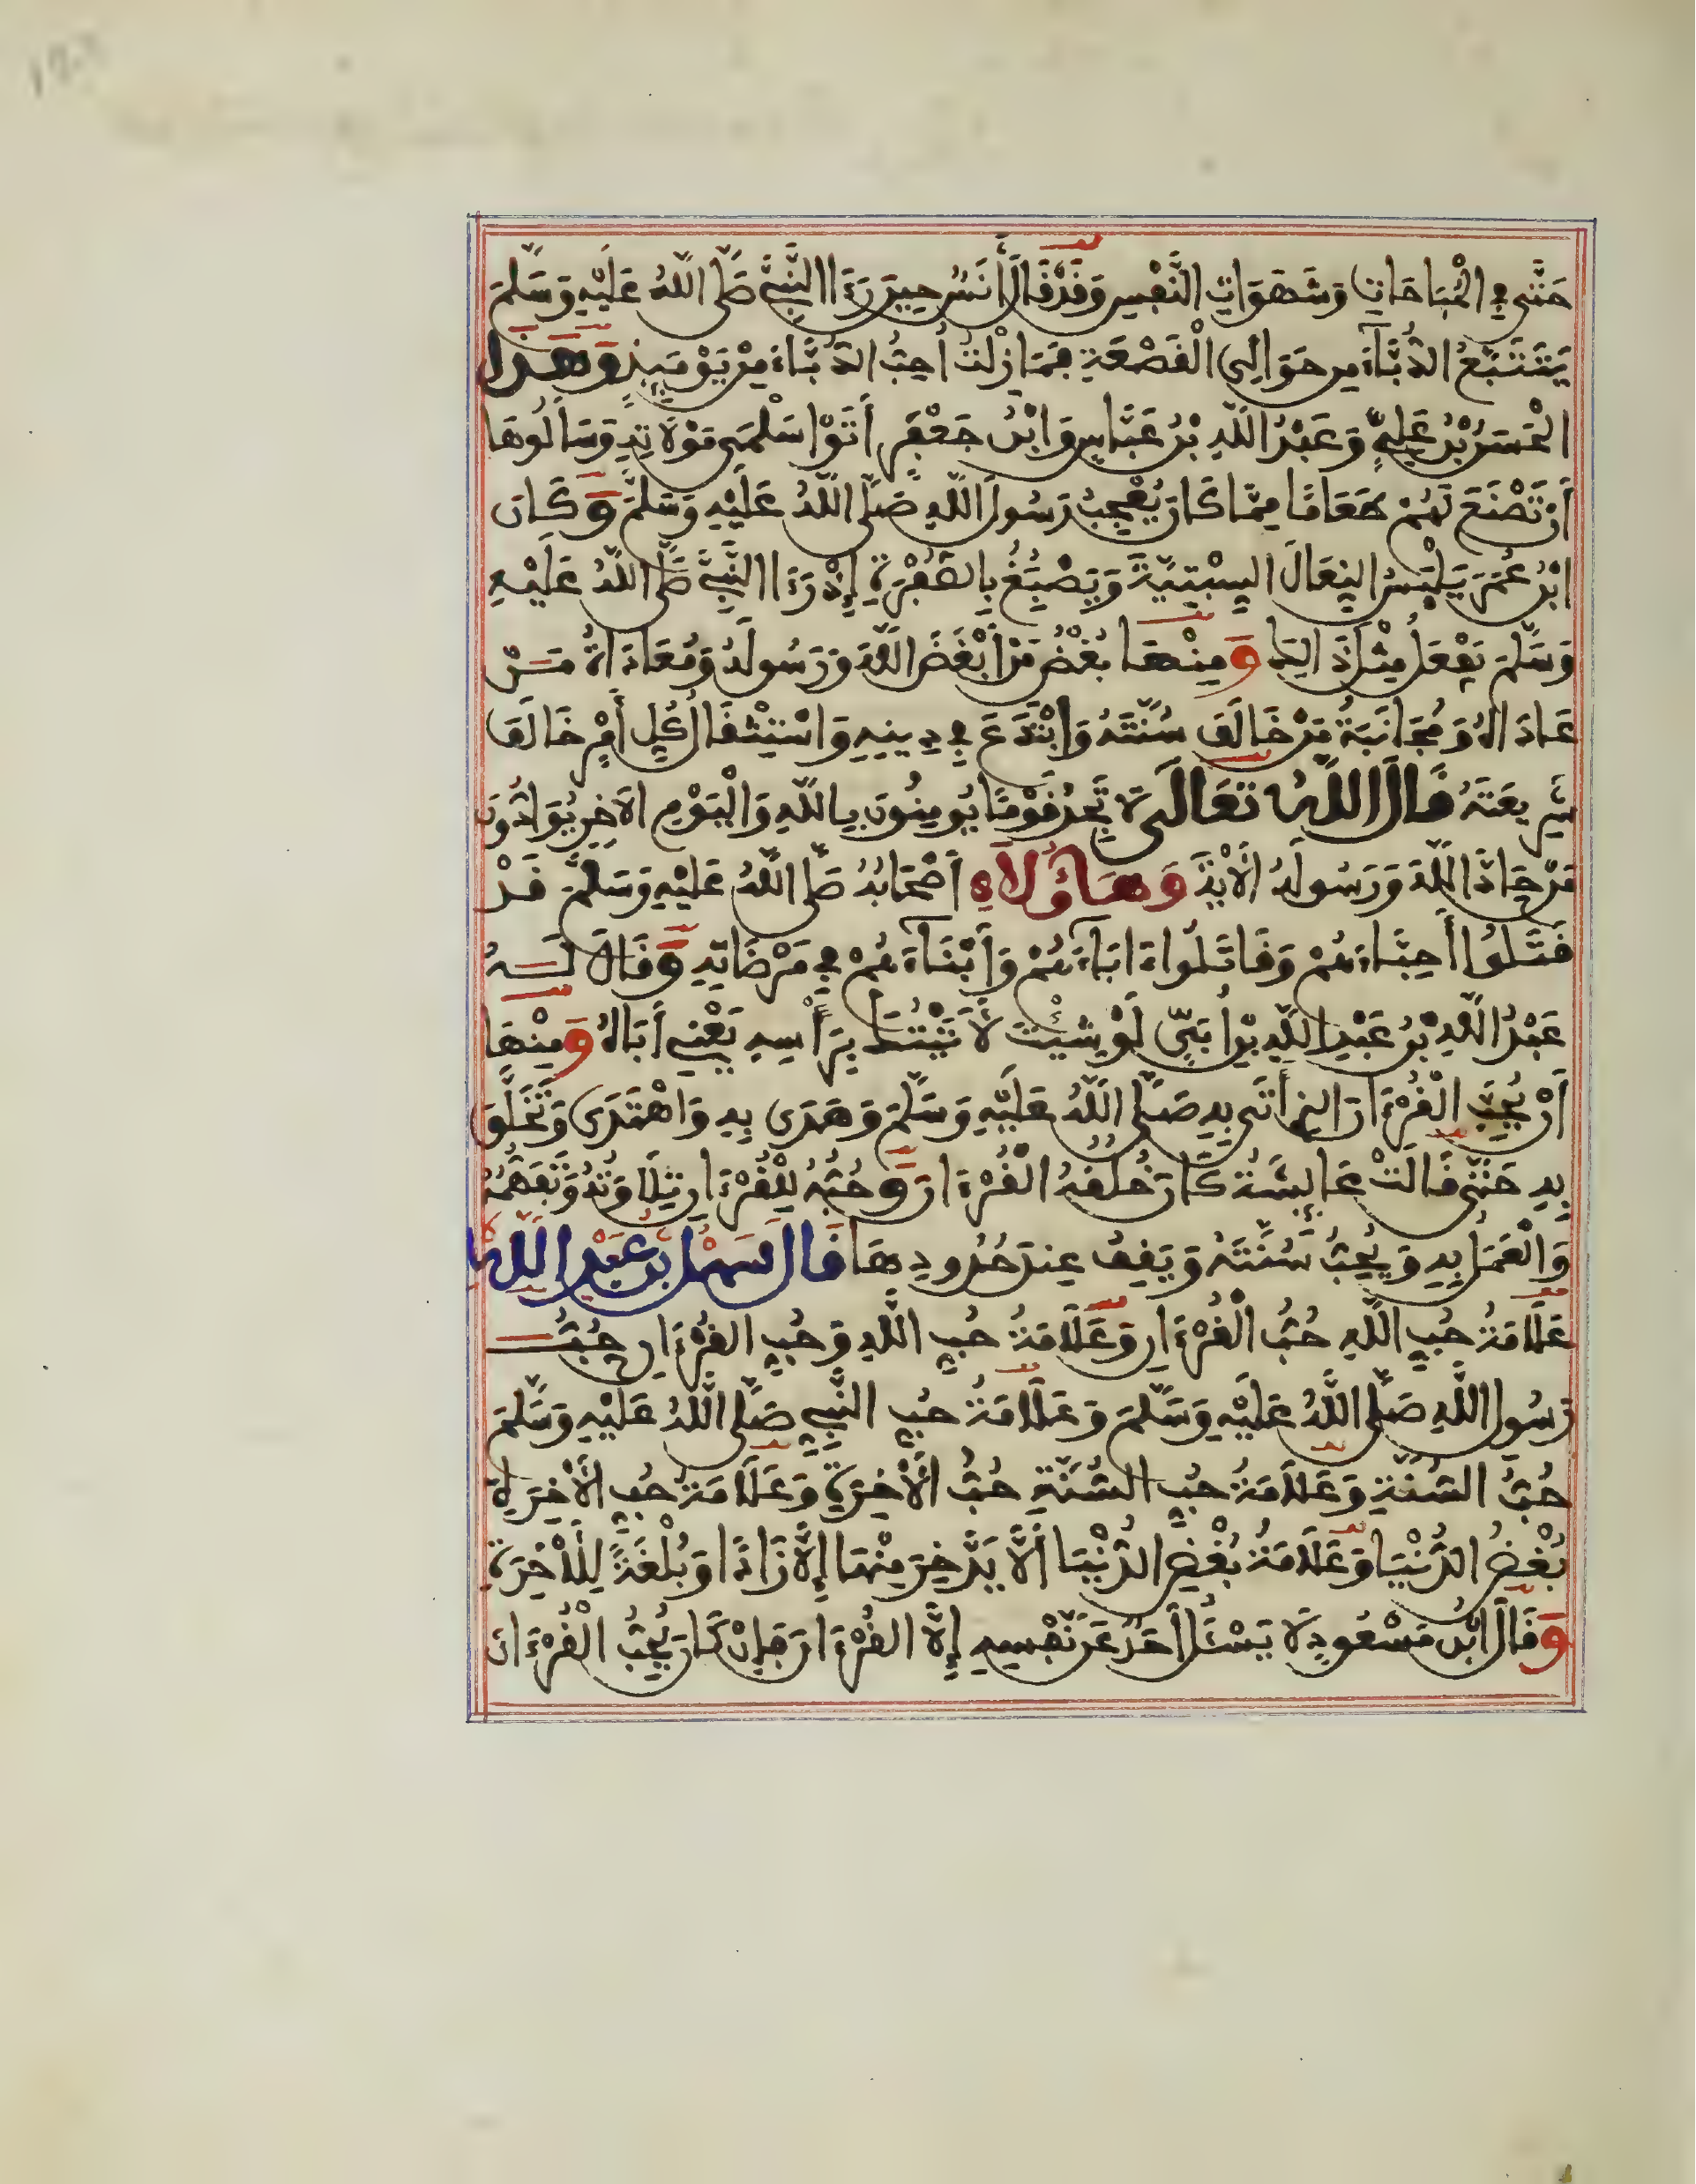 حَتَّى فِي الْمُبَاحَاتِ وَشَهَوَاتِ النَّفْسِ وَقَدْ قَالَ أَنَسٌ حِينَ رَءَا النَّبِيَّ صَلَّى اللَّهُ عَلَيْهِ وَسَلَّمَ
يَتَتَبَّعُ الدُّبَّاءَ مِنْ حَوَالِي الْقَصْعَةِ فَمَا زِلْتُ أُحِبُّ الدُّبَّاءَ مِنْ يَوْمَئِذٍ وَهَذَا
الْحَسَنُ بْنُ عَلِيٍّ وَعَبْدُ اللَّهِ بْنُ عَبَّاسٍ وَابْنُ جَعْفَرٍ أَتَوْا سَلْمَى مَوْلَاتِهِ وَسَأَلُوهَا
أَنْ تَصْنَعَ لَهُمْ طَعَامًا مِمَّا كَانَ يُعْجِبُ رَسُولَ اللَّهِ صَلَّى اللَّهُ عَلَيْهِ وَسَلَّمَ وَكَانَ
ابْنُ عُمَرَ يَلْبَسُ النِّعَالَ السِّبْتِيَّةَ وَيَصْبُغُ بِالصُّفْرَةِ إِذْ رَءَا النَّبِيَّ صَلَّى اللَّهُ عَلَيْهِ
وَسَلَّمَ يَفْعَلُ مِثْلَ ذَالِكَ وَمِنْهَا بُغْضُ مَنْ أَبْغَضَ اللَّهَ وَرَسُولَهُ وَمُعَادَاةُ مَنْ
عَادَاهُ وَمُجَانَبَةُ مَنْ خَالَفَ سُنَّتَهُ وَابْتَدَعَ فِي دِينِهِ وَاسْتِثْقَالُ كُلِّ أَمْرٍ خَالَفَ
شَرِيعَتَهُ قَالَ اللَّهُ تَعَالَى لَا تَجِدُ قَوْمًا يُومِنُونَ بِاللَّهِ وَالْيَوْمِ الَاخِرِ يُوَادُّونَ
مَنْ حَادَّ اللَّهَ وَرَسُولَهُ الْأَيَةَ وَهَاؤُلَاءِ أَصْحَابُهُ صَلَّى اللَّهُ عَلَيْهِ وَسَلَّمَ قَدْ
قَتَلُوا أَحِبَّاءَهُمْ وَقَاتَلُوا ءَابَاءَهُمْ وَأَبْنَاءَهُمْ فِي مَرْضَاتِهِ وَقَالَ لَهُ
عَبْدُ اللَّهِ بْنُ عَبْدِ اللَّهِ بْنِ أُبَيٍّ لَوْ شِئْتَ لَأَتَيْتُكَ بِرَأْسِهِ يَعْنِي أَبَاهُ وَمِنْهَا
أَنْ يُحِبَّ الْقُرْءَانَ الذِي أَتَى بِهِ صَلَّى اللَّهُ عَلَيْهِ وَسَلَّمَ وَهَدَى بِهِ وَاهْتَدَى وَتَخَلَّقَ
بِهِ حَتَّى قَالَتْ عَائِشَةُ كَانَ خُلُقُهُ الْقُرْءَانَ وَحُبُّهُ لِلْقُرْءَانِ تِلَاوَتُهُ وَتَفَهُّمُهُ
وَالْعَمَلُ بِهِ وَيُحِبُّ سُنَّتَهُ وَيَقِفُ عِندَ حُدُودِهَا قَالَ سَهْلُ بْنُ عَبْدِ اللَّهِ
عَلَامَةُ حُبِّ اللَّهِ حُبُّ الْقُرْءَانِ وَعَلَامَةُ حُبِّ اللَّهِ وَحُبِّ الْقُرْءَانِ حُبُّ
رَسُولِ اللَّهِ صَلَّى اللَّهُ عَلَيْهِ وَسَلَّمَ وَعَلَامَةُ حُبِّ النَّبِيِّ صَلَّى اللَّهُ عَلَيْهِ وَسَلَّمَ
حُبُّ السُّنَّةِ وَعَلَامَةُ حُبِّ السُّنَّةِ حُبُّ الْأَخِرَةِ وَعَلَامَةُ حُبِّ الْأَخِرَةِ
بُغْضُ الدُّنْيَا وَعَلَامَةُ بُغْضِ الدُّنْيَا أَلَّا يَدَّخِرَ مِنْهَا إِلَّا زَادًا وَبُلْغَةً لِلْأَخِرَةِ
وَقَالَ ابْنُ مَسْعُودٍ لَا يَسْئَلُ أَحَدٌ عَنْ نَفْسِهِ إِلَّا الْقُرْءَانَ فَإِنْ كَانَ يُحِبُّ الْقُرْءَانَ